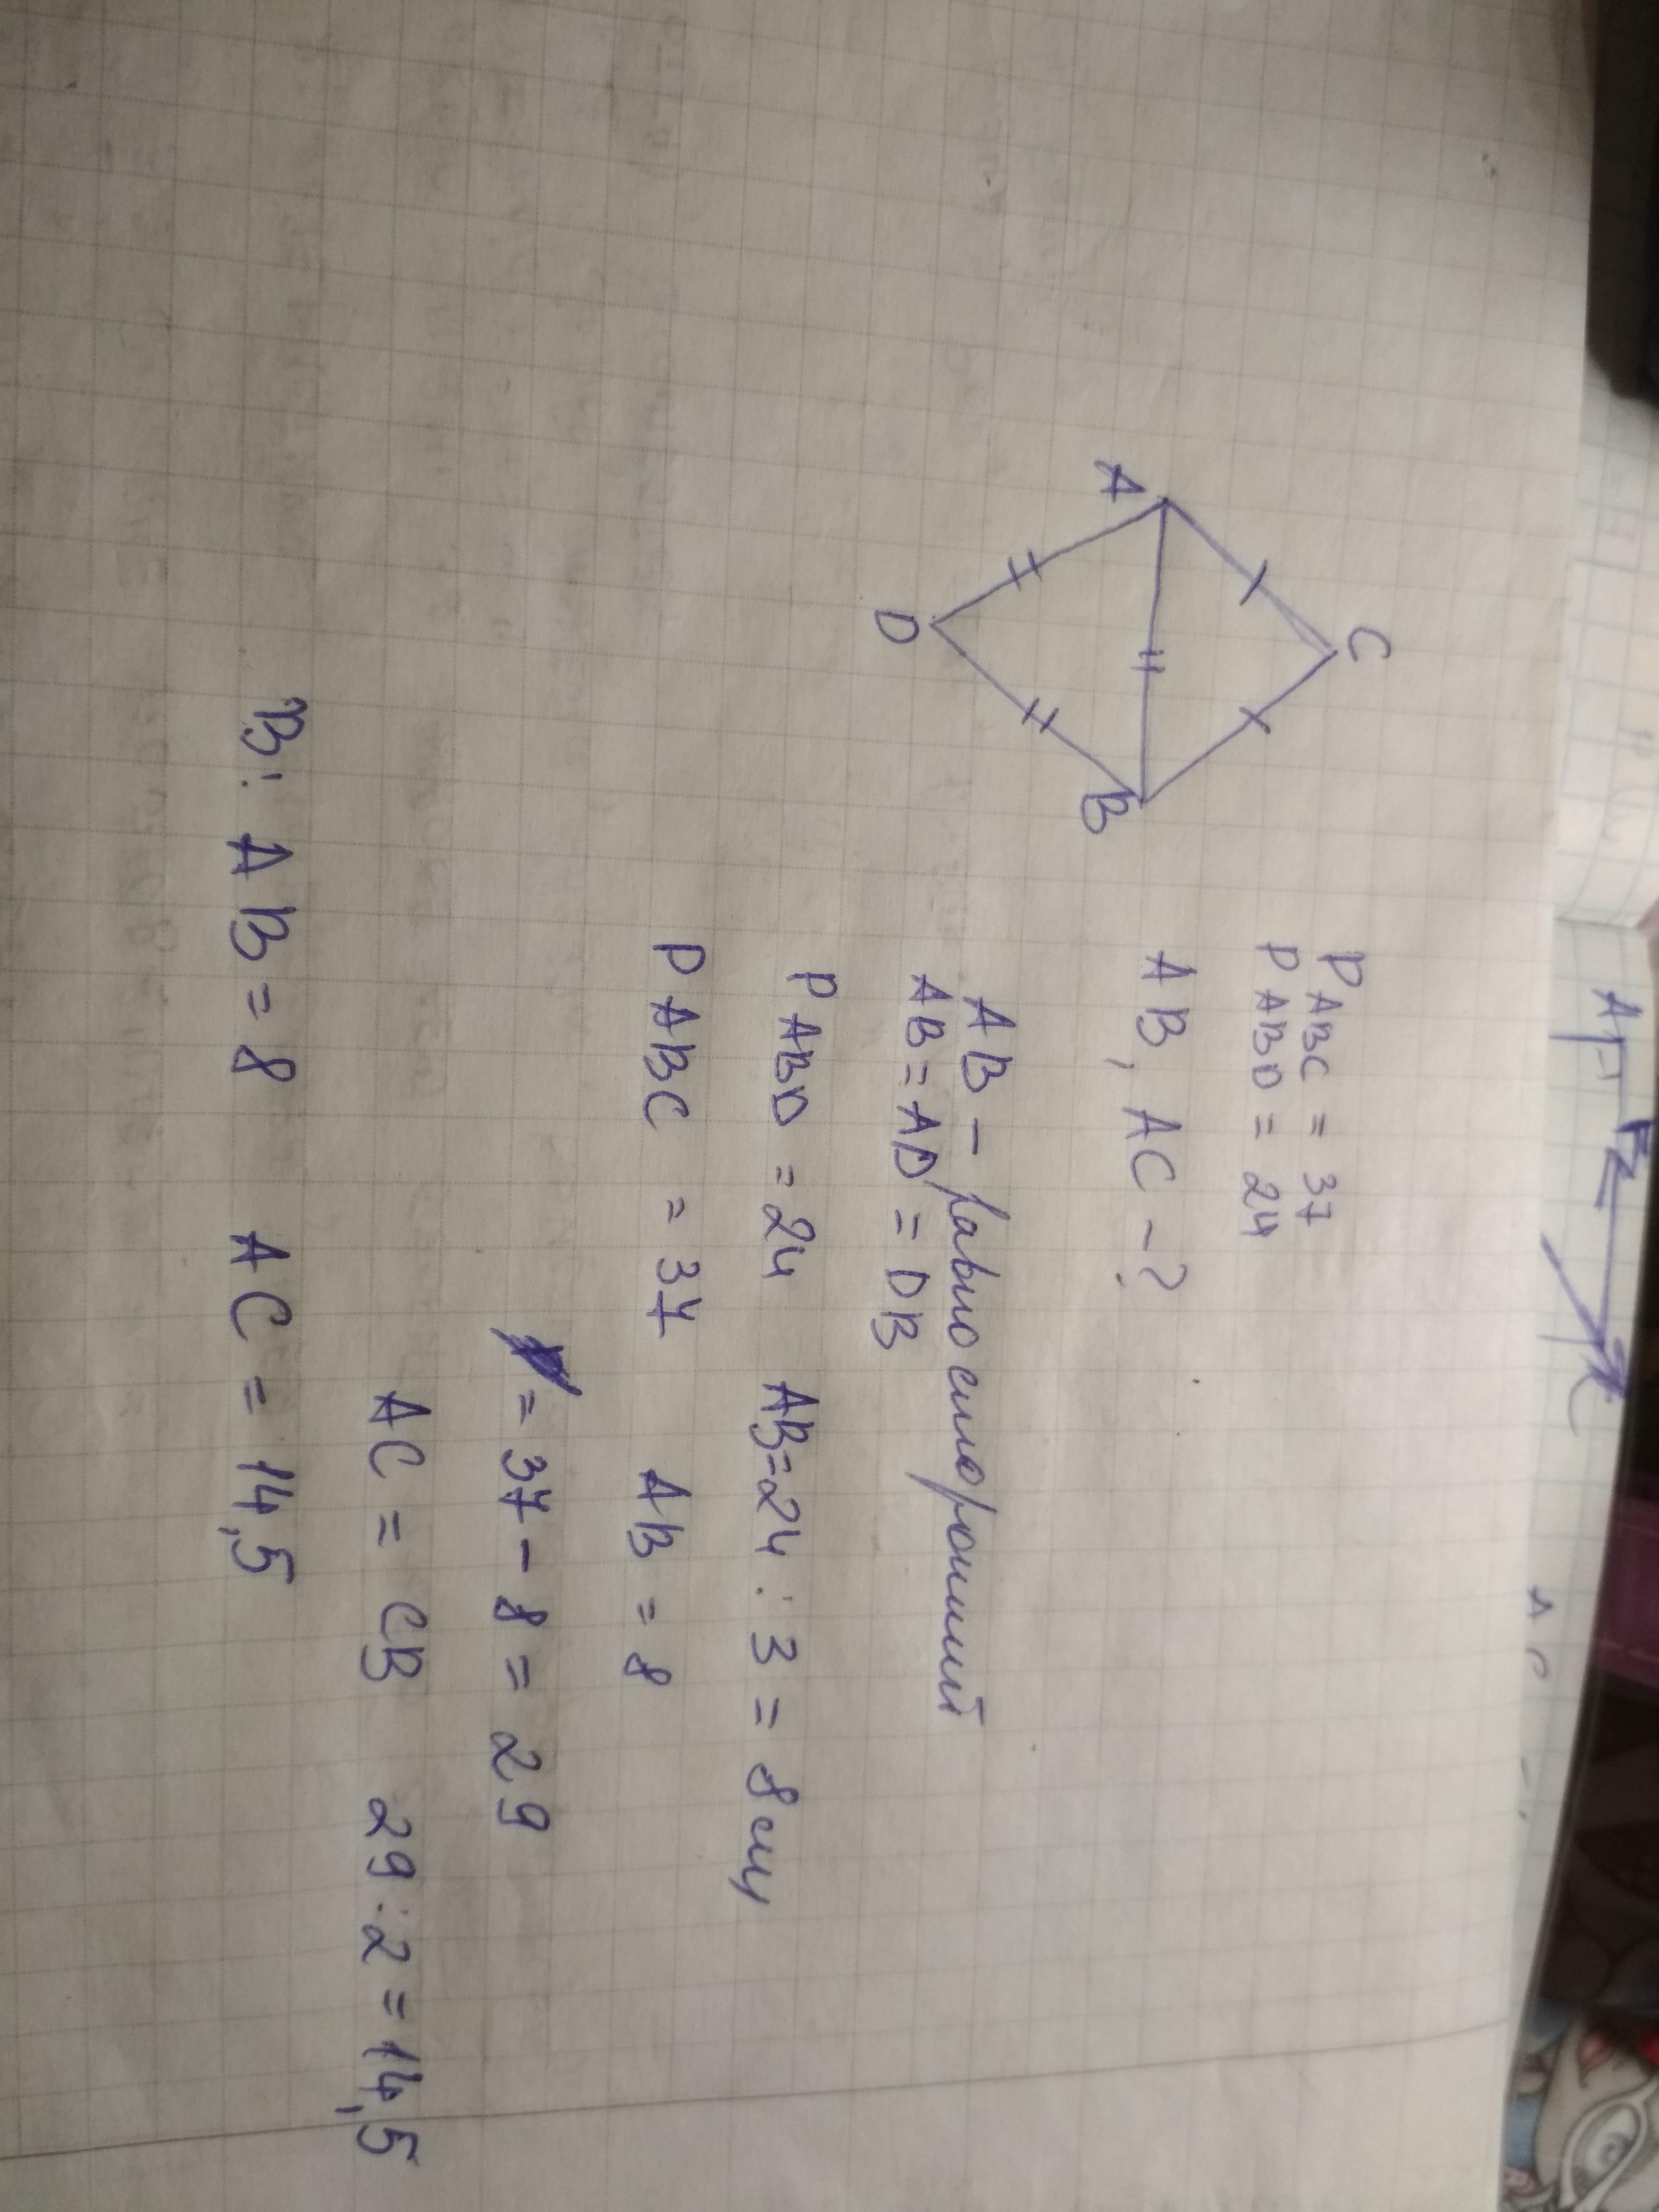 C
A
B
D
P ABC = 37
P ABD = 24
AB, AC - ?
AB - равносторонний
AB = AD = DB
P ABD = 24 AB = 24 : 3 = 8 см
P ABC = 37 AB = 8
= 37 - 8 = 29
AC = CB 29 : 2 = 14,5
В: AB = 8 AC = 14,5